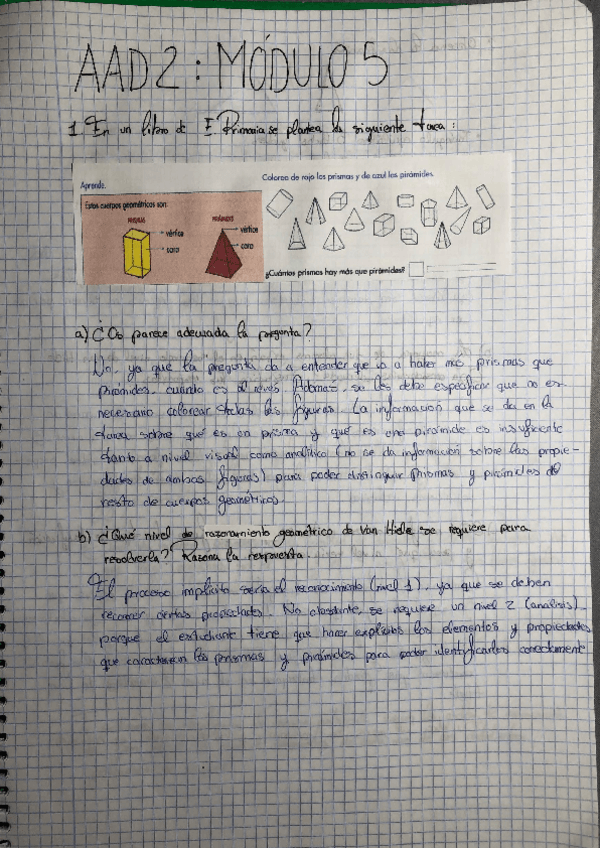 AAD2: MÓDULO 5
1. En un libro de E. Primaria se plantea la siguiente tarea:
Aprende.
Estos cuerpos geométricos son:
PRISMAS
PIRÁMIDES
vértice
cara
vértice
cara
Colorea de rojo los prismas y de azul las pirámides.
¿Cuántos prismas hay más que pirámides?
a) ¿Os parece adecuada la pregunta?
No, ya que la pregunta da a entender que va a haber más prismas que
pirámides, cuando es al revés. Además, se les debe especificar que no es
necesario colorear todas las figuras. La información que se da en la
tarea sobre qué es un prisma y qué es una pirámide es insuficiente
tanto a nivel visual como analítico (no se da información sobre las propie-
dades de ambas figuras) para poder distinguir prismas y pirámides del
resto de cuerpos geométricos.
b) ¿Qué nivel de razonamiento geométrico de Van Hiele se requiere para
resolverla? Razona la respuesta.
El proceso implícito sería el reconocimiento (nivel 1), ya que se deben
reconocer ciertas propiedades. No obstante, se requiere un nivel 2 (análisis)
porque el estudiante tiene que hacer explícitos los elementos y propiedades
que caracterizan los prismas y pirámides para poder identificarlos correctamente